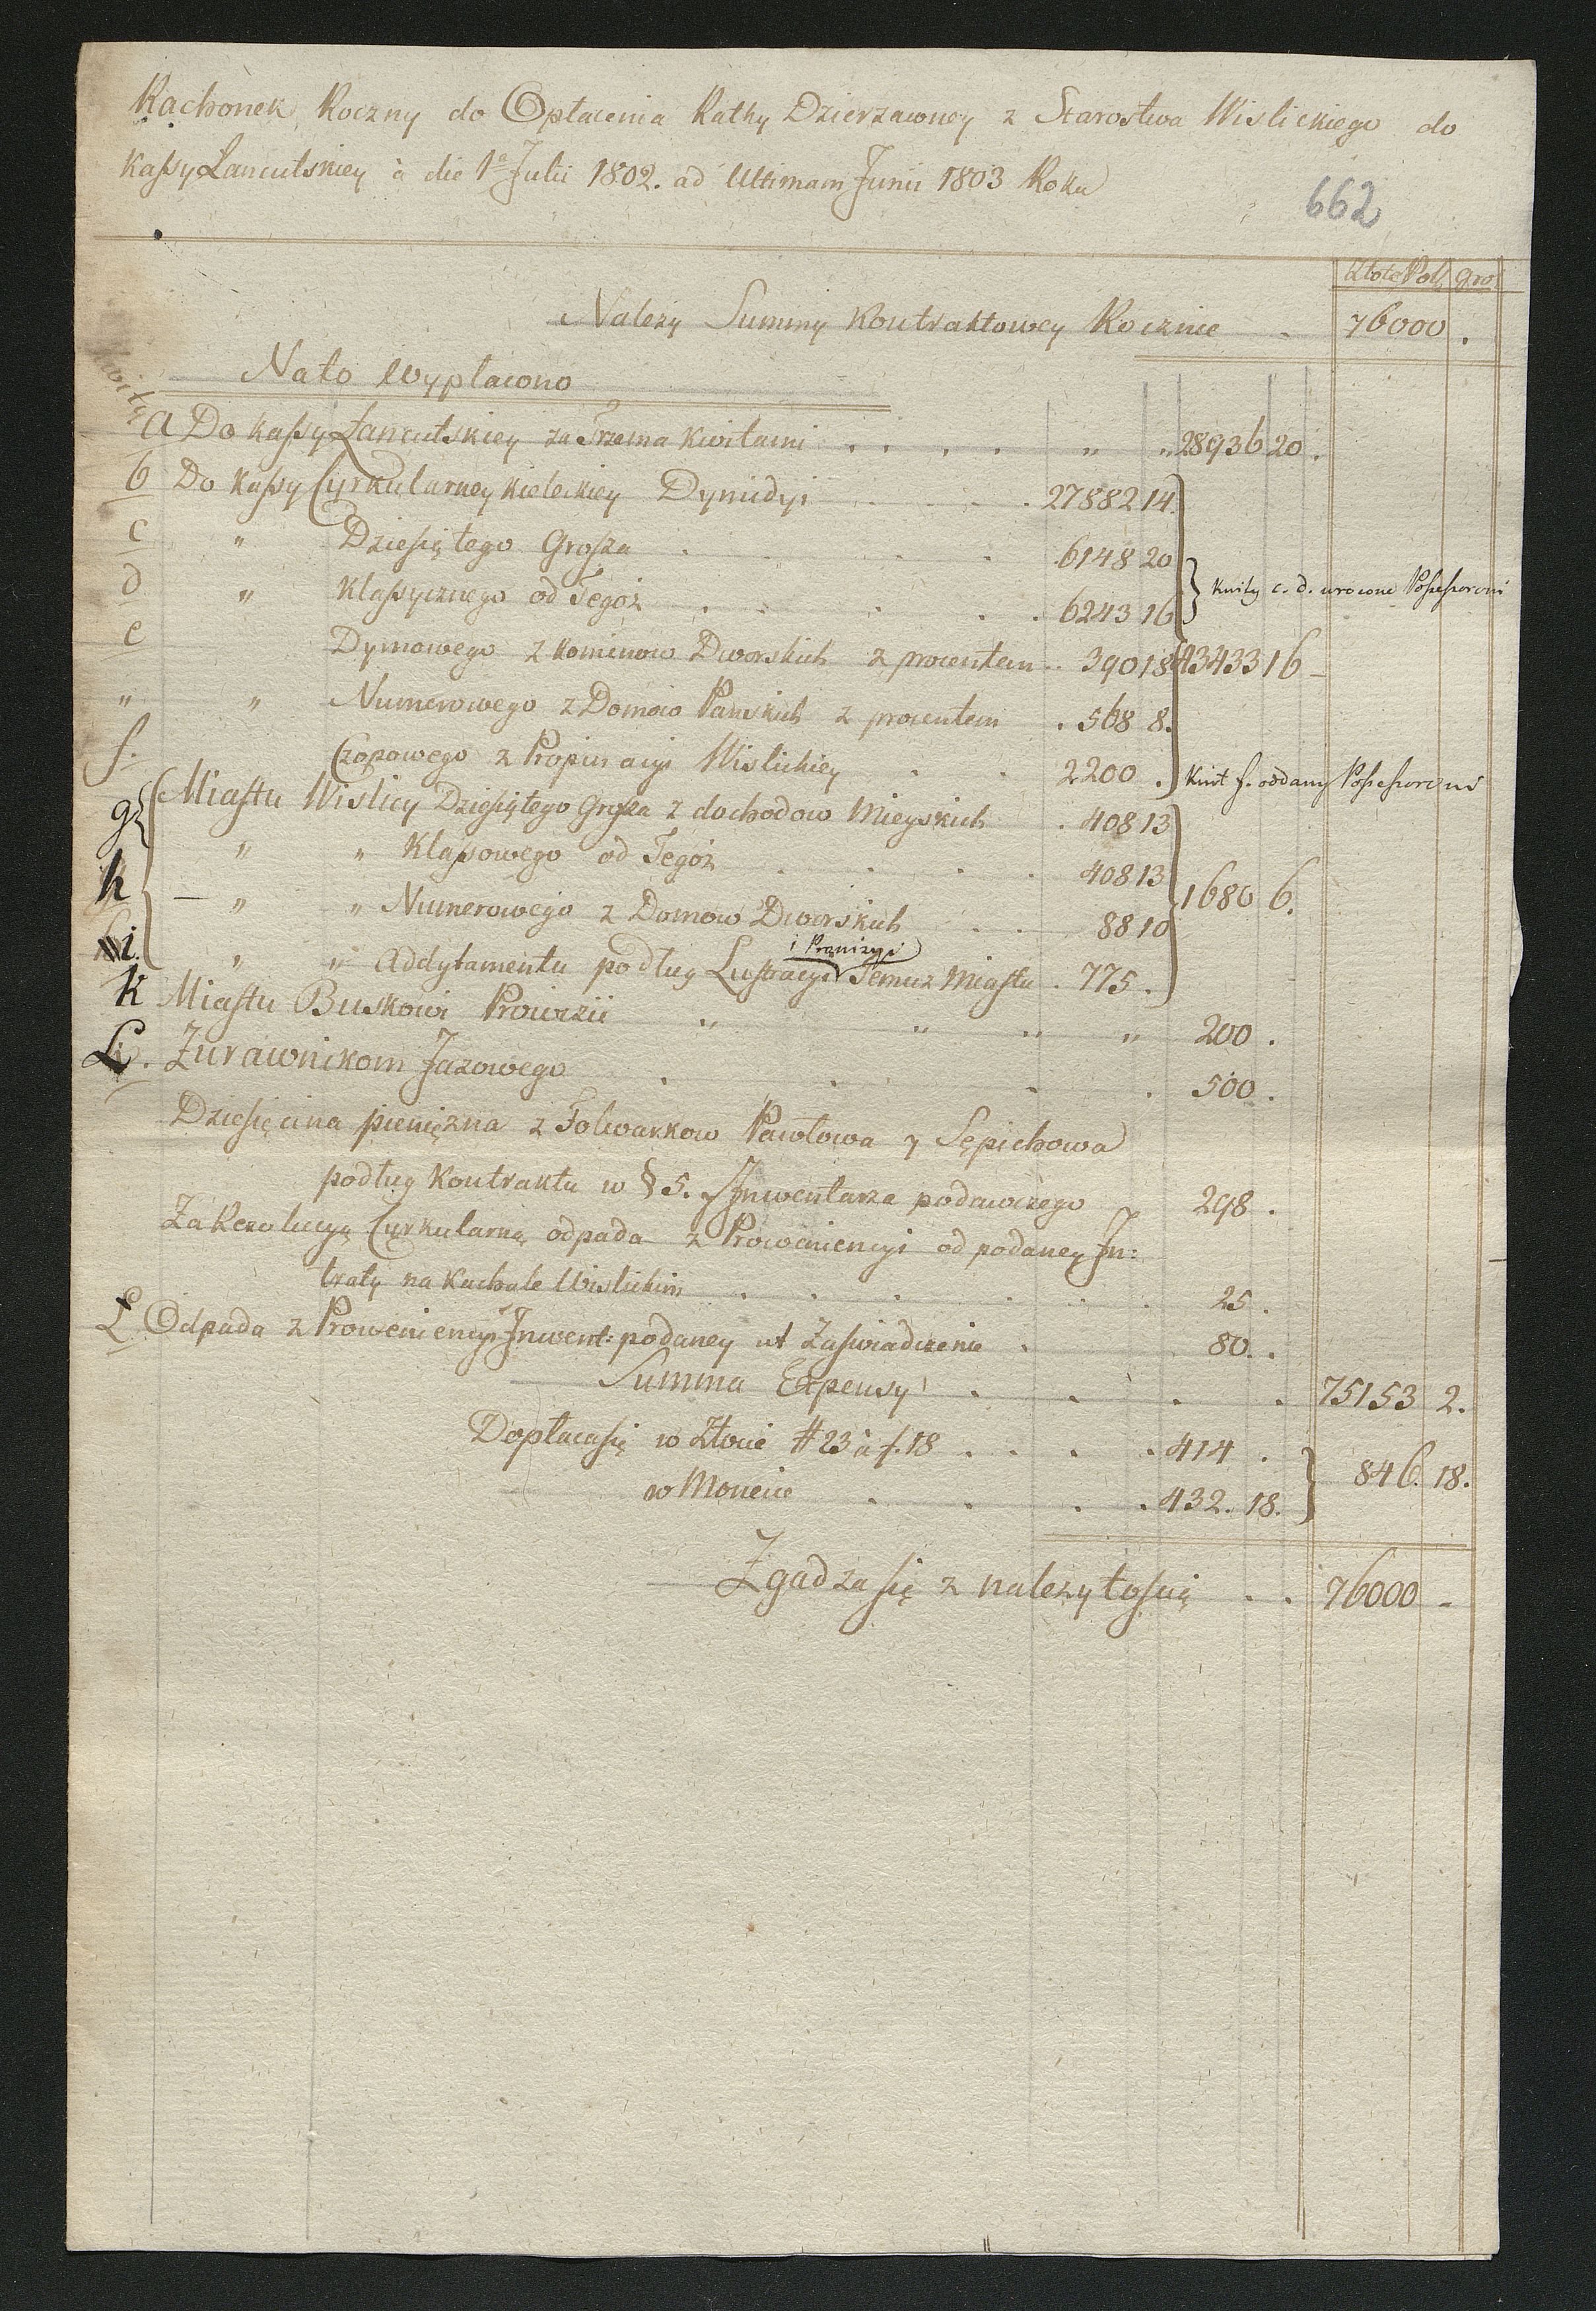 Rachonek Roczny do Opłacenia Rathy Dzierzawney z Starostwa Wislickiego do
Kaſsy Łancutskiey à die 1ª Julii 1802. ad Ultimam Junii 1803 Roku
662
Złote Pol. gro.
Należy Summy Kontraktowey Rocznie . 76000 .
Kwity
Nato Wypłacono
a Do kaſsy Łancutskiey za Trzema Kwitami . . . . " " 28936 20 .
b Do Kaſsy Cyrkularney kieleckiey Dymidyi . . . 27882 14.
c " Dzieſiętego Groſza . . . . 6148 20
d " Klaſsycznego od Tegoż . . . . 6243 16
} Kwity c. d. wrocone Poſseſsorowi
e Dymowego z Kominow Dworskich z procentem . . 390 18 43433 16 –
" " Numerowego z Domow Pańskich z procentem . 568 8.
f. Czopowego z Propinacyi Wislickiey . . 2200 . Kwit f. oddany Poſseſsorowi
g Miaſtu Wislicy Dzieſiętego Groſza z dochodow Mieyskich . 408 13
h " " Klaſsowego od Tegoż . . . . 408 13
1680 6.
– " " Numerowego z Domow Dworskich . . . 88 10
i Prowizyi
i. " " Addytamentu podług Lustracyi Temuz Miaſtu . 775 .
k Miaſtu Buskowi Prowizii " " " " 200 .
Ł. Żurawnikom Jazowego . . . . 500 .
Dzieſięcina pieniężna z Folwarkow Pawłowa y Sępichowa
podług Kontraktu w § 5. y Inwentarza podawczego 298 .
Za Rezolucyą Cyrkularną odpada z Proweniencyi od podaney In:
traty na Kachale Wislickim . . . . . . . 25 .
Ł Odpada z Proweniencyi Inwent: podaney ut Zaſwiadczenie . 80 . .
Summa Expensy . . . . 75153 2.
Dopłacaſię w Złocie # 23 à f. 18 . . . . 414 .
846. 18.
w Monecie . . . . 432. 18.
Zgadza ſię z należytoſcią . . 76000 –